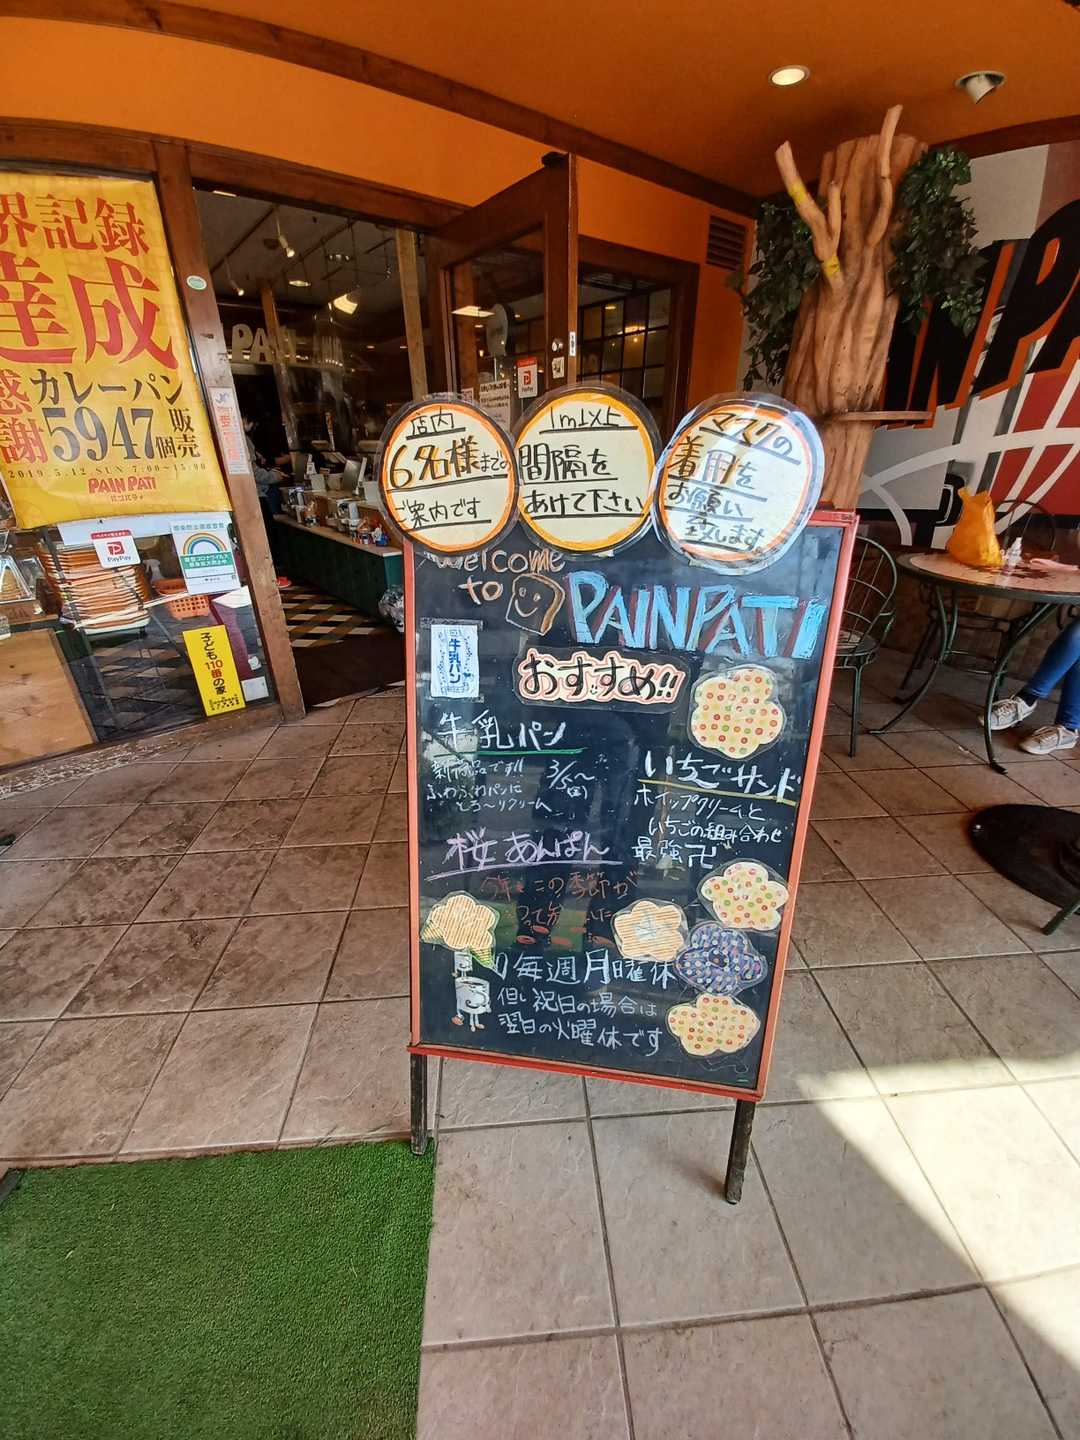 界記録
達成
感謝
カレーパン
5947個販売
2019.5.12 SUN 7:00〜15:00
PAIN PATI
パンパティ
PayPay
子ども110番の家
PAIN PATI
PayPay
店内
6名様までの
ご案内です
1m以上
間隔を
あけて下さい
マスクの
着用を
お願い
致します
Welcome
to
PAINPATI
牛乳パン
おすすめ!!
牛乳パン
新商品です!!
3/5〜
ふわふわパンに
とろ〜りクリーム
いちごサンド
ホイップクリームと
いちごの組み合わせ
最強卍
桜あんぱん
今年もこの季節が
毎週月曜休
但し祝日の場合は
翌日の火曜休です